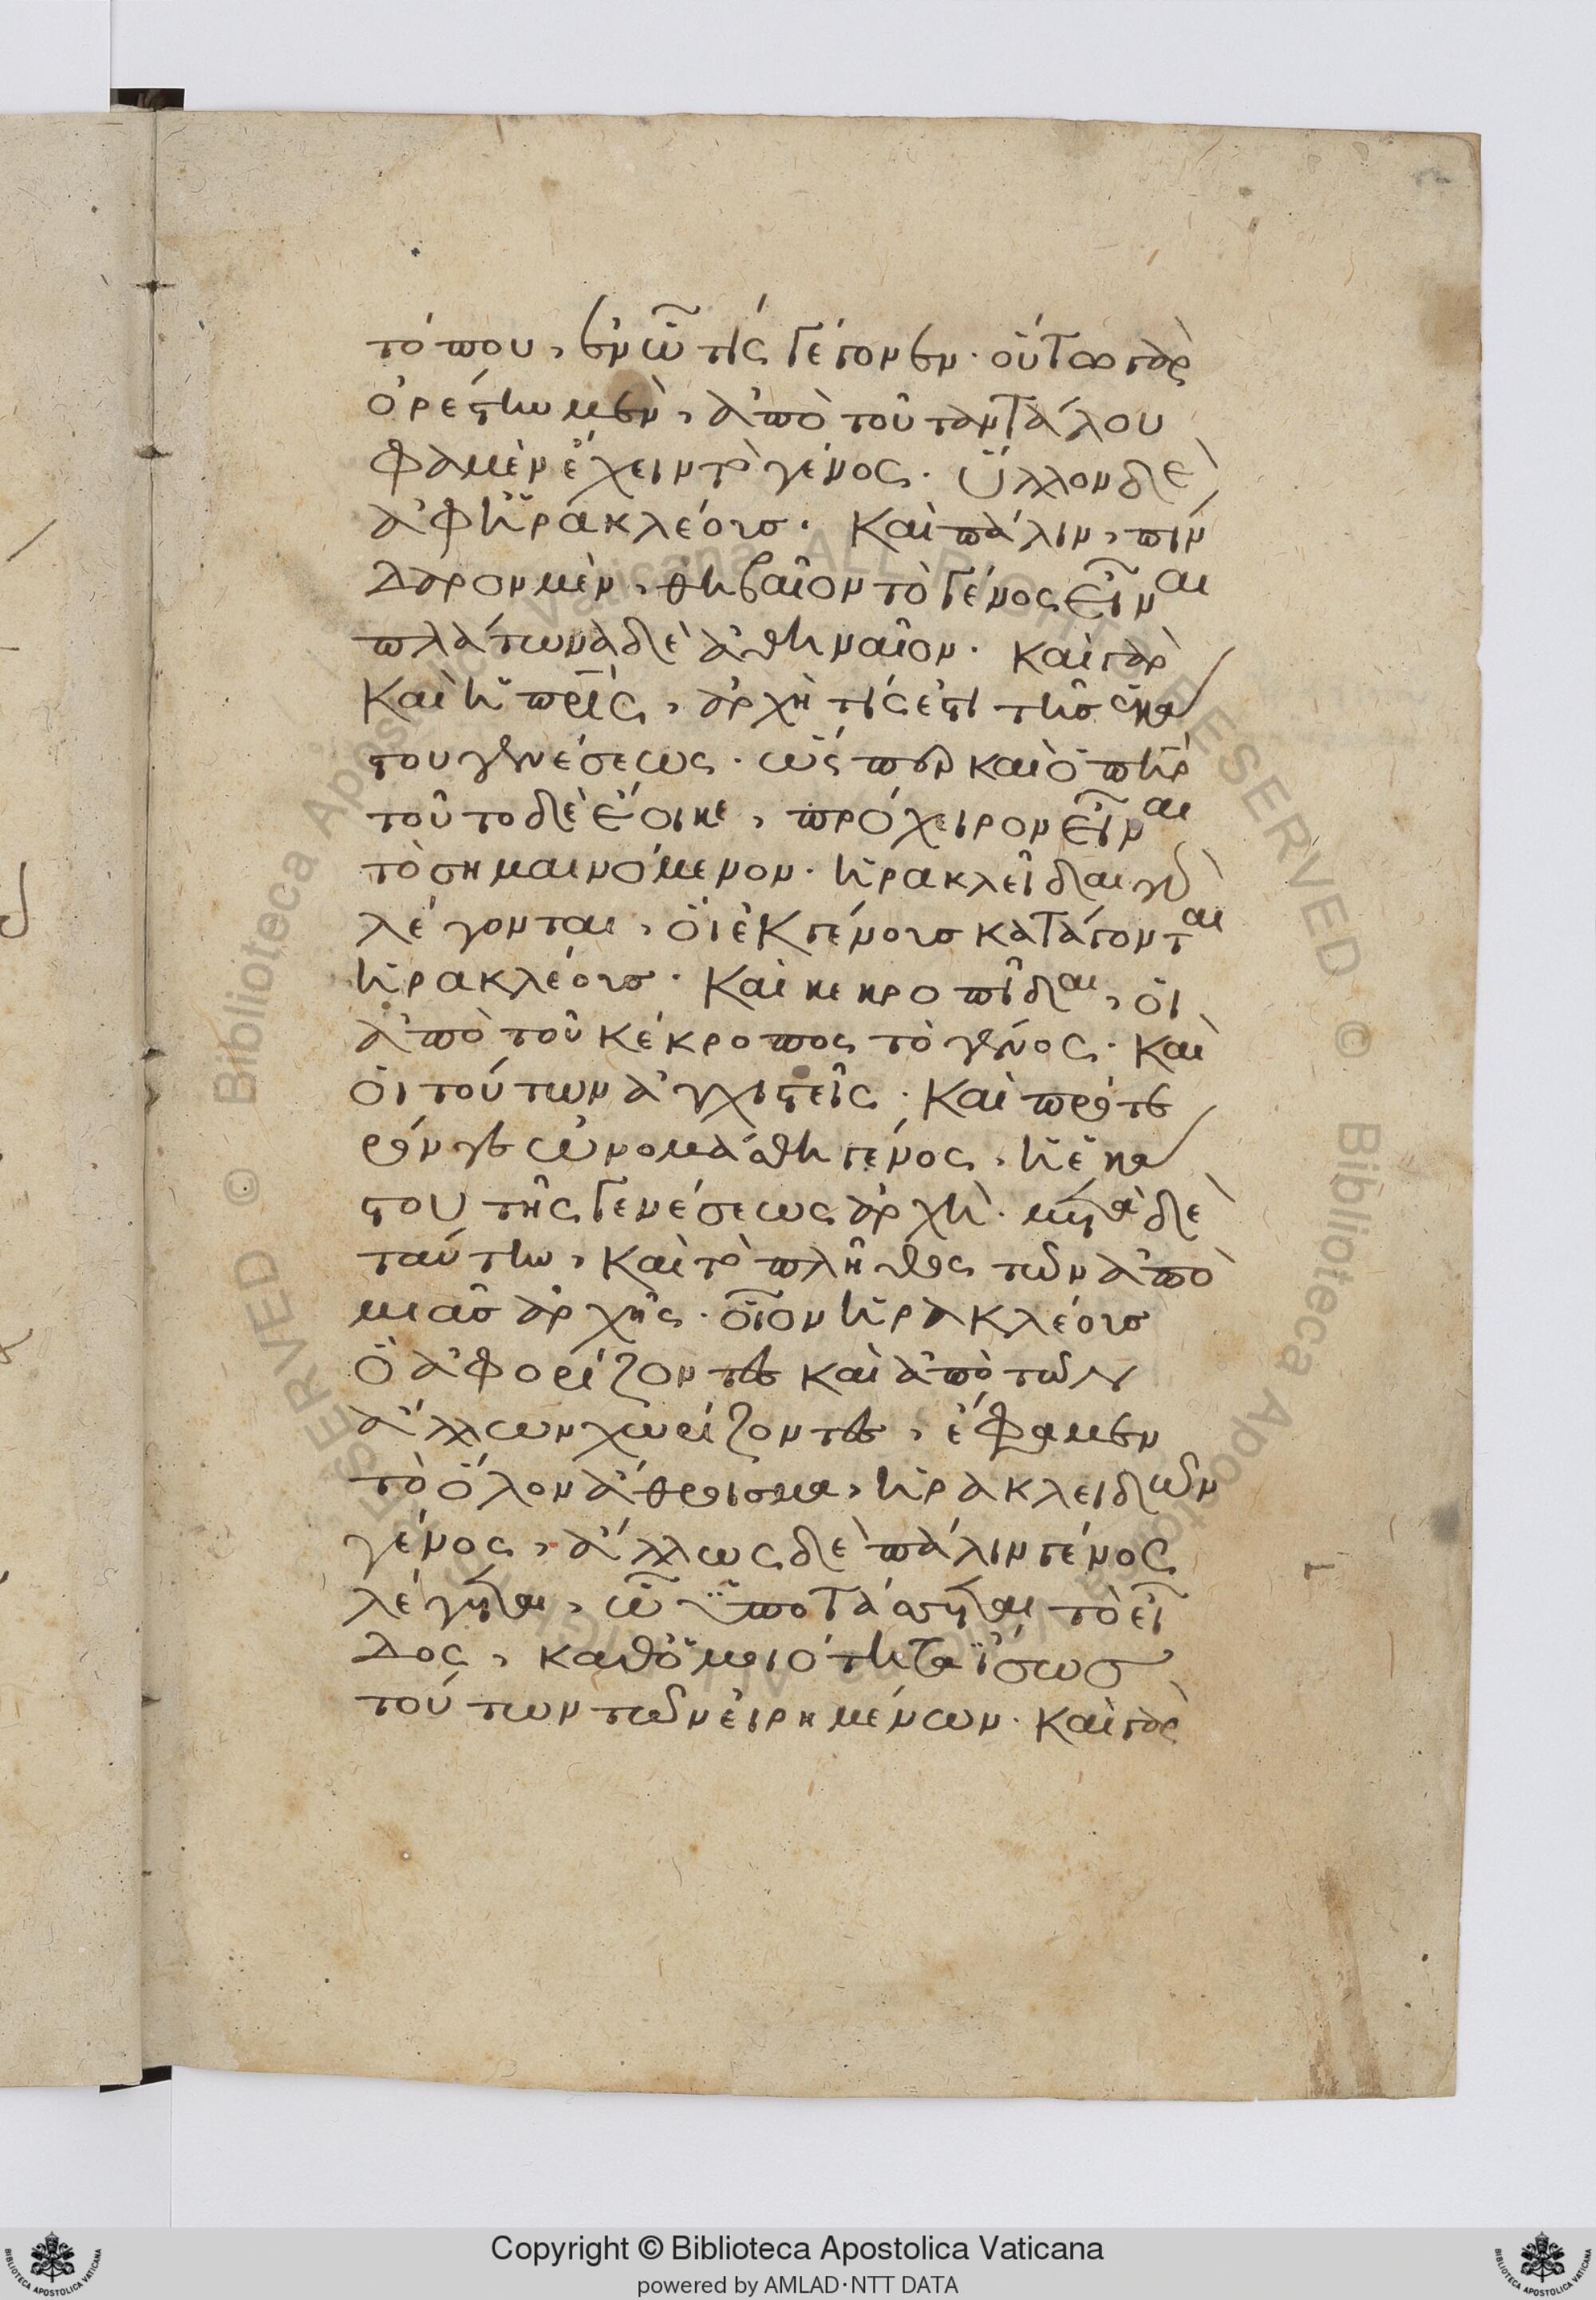 τόπου, ἐν ᾧ τίς γέγονεν· οὕτω γὰρ
ὀρέστην μὲν, ἀπὸ τοῦ ταντάλου
φαμὲν ἔχειν τὸ γένος. ὕλλον δὲ
ἀφ ἡρακλέους. Καὶ πάλιν, πίν
δαρον μὲν, θηβαῖον τὸ γένος εἶναι
πλάτωνα δὲ ἀθηναῖον. καὶ γὰρ
Καὶ ἡ πρῒς, ἀρχή τίς ἐστι τῆς ἑκά
στου γενέσεως. ὥσπερ καὶ ὁ πὴρ
τοῦτο δὲ ἔοικε, πρόχειρον εἶναι
τὸ σημαινόμενον. ἡρακλεῖδαι γὰρ
λέγονται, ὁι ἐκ γένους κατάγονται
ἡρακλέους. Καὶ κεκροπῖδαι, ὁι
ἀπὸ τοῦ κέκροπος τὸ γένος. Καὶ
ὁι τούτων ἀγχιστεῖς. Καὶ πρότε
ρόν γε ὠνομάσθη γένος, ἡ ἑκά
στου τῆς γενέσεως ἀρχή. μετὰ δὲ
ταύτην, Καὶ τὸ πλῆθος τῶν ἀπὸ
μιᾶς ἀρχῆς. οἷον ἡρακλέους
ὃ ἀφορίζοντες καὶ ἀπὸ τῶν
ἄλλων χωρίζοντες, ἔφαμεν
τὸ ὅλον ἄθροισμα, ἡρακλειδῶν
γένος, ἄλλως δὲ πάλιν γένος
λέγεται, ᾧ ὑποτάσσεται τὸ εἶ
δος, καθ ὁμοιότητα ἴσως
τούτων τῶν εἰρημένων. καὶ γὰρ
Copyright © Biblioteca Apostolica Vaticana
powered by AMLAD·NTT DATA